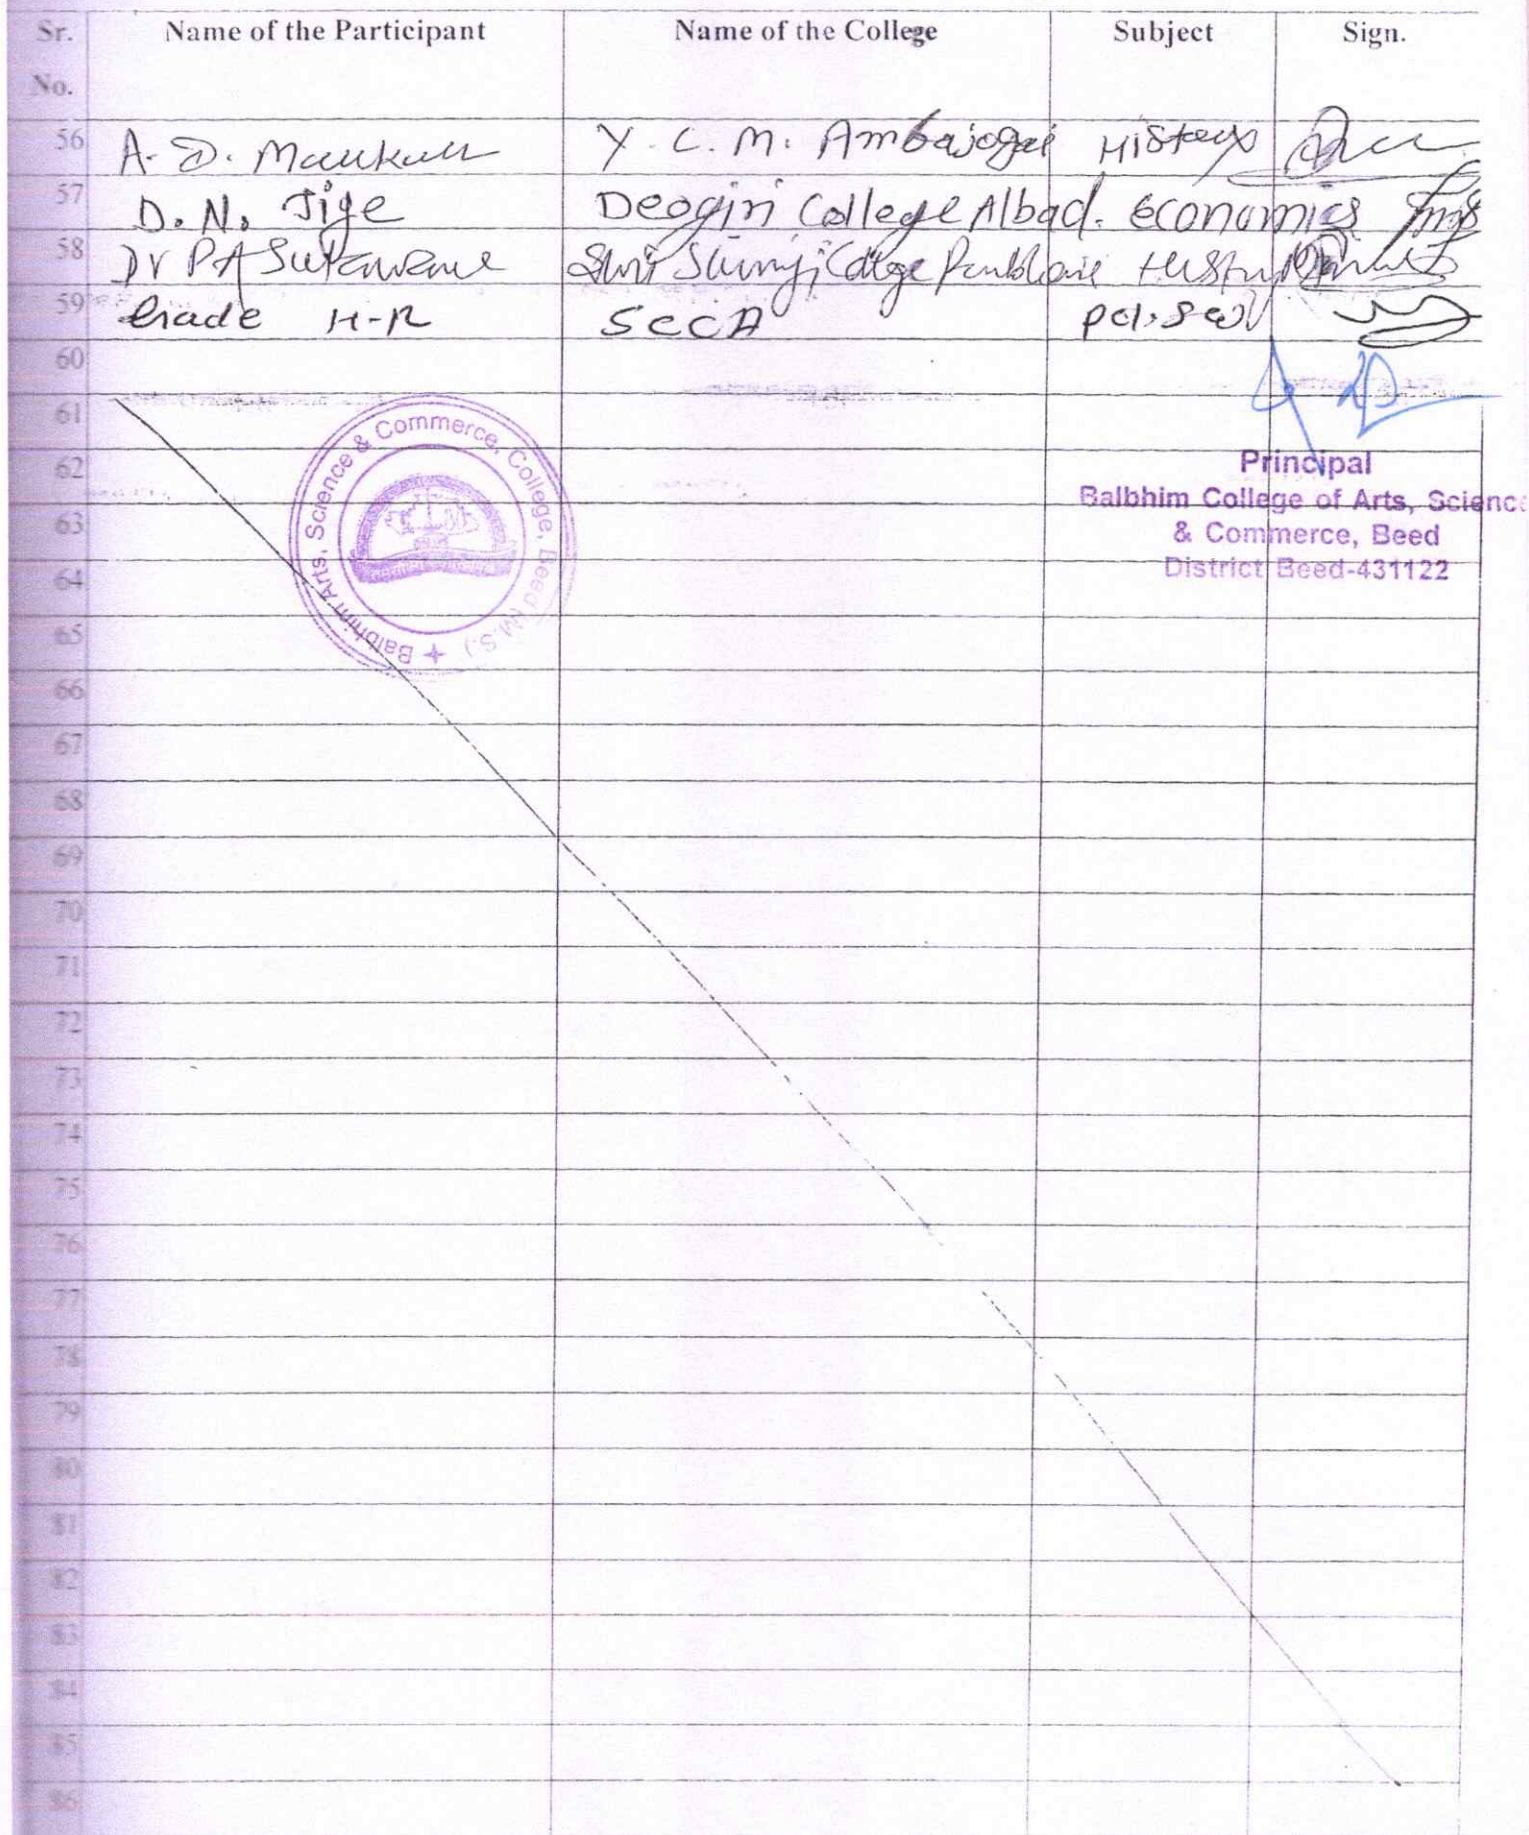 Sr. No. Name of the Participant Name of the College Subject Sign.
56 A. D. Y. C. M. Ambajogai History
57 D. N. Jige Deogiri College A'bad. Economics
58 Dr P A Shri College History
59 H-R SCCA Pol. Sci
60
61
62
63
64
65
66
67
68
69
70
71
72
73
74
75
76
77
78
79
80
81
82
83
84
85
86
Balbhim Arts, Science & Commerce, College, Beed (M.S.)
Principal
Balbhim College of Arts, Science
& Commerce, Beed
District Beed-431122